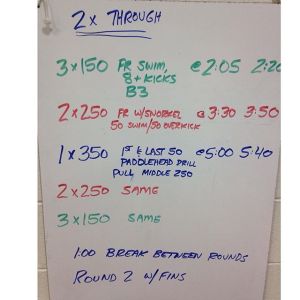 2x THROUGH
3x150 FR SWIM, @ 2:05 2:20
8+KICKS
B3
2x250 FR W/SNORKEL @ 3:30 3:50
50 SWIM/50 OVERKICK
1x350 1ST & LAST 50 @ 5:00 5:40
PADDLEHEAD DRILL
PULL MIDDLE 250
2x250 SAME
3x150 SAME
1:00 BREAK BETWEEN ROUNDS
ROUND 2 W/FINS